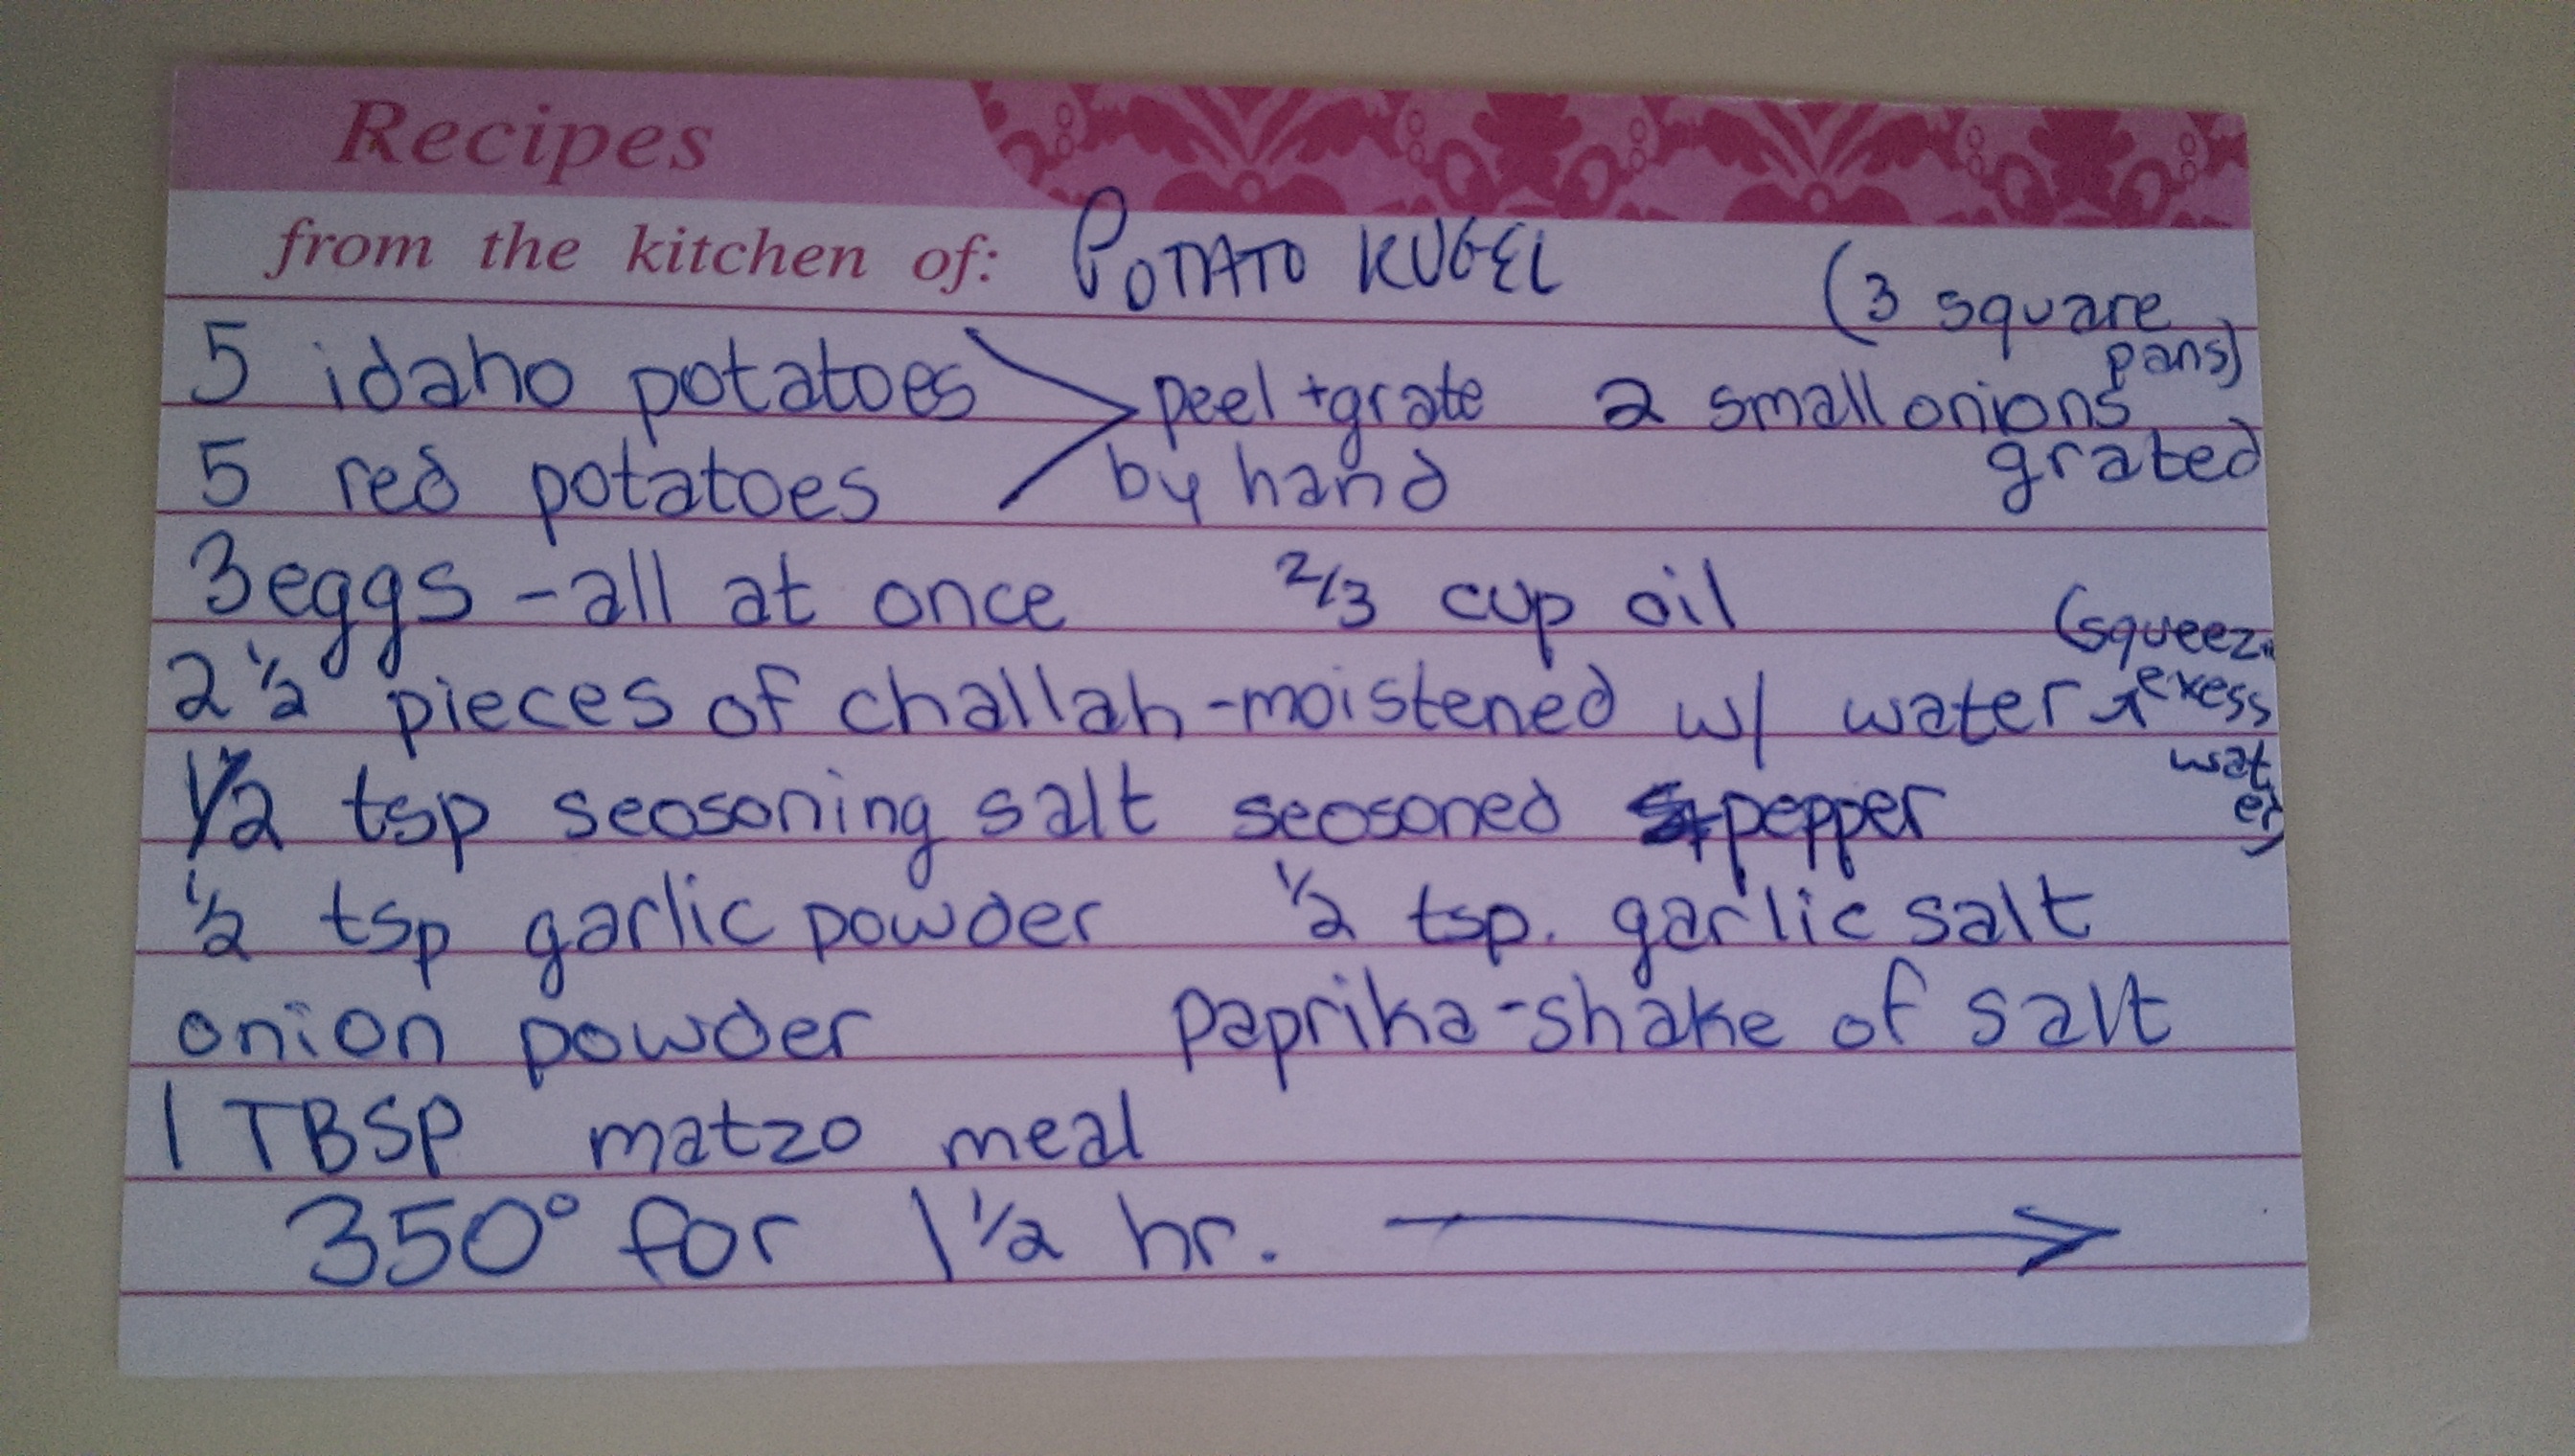 Recipes
from the kitchen of: POTATO KUGEL (3 square
pans)
5 idaho potatoes peel + grate 2 small onions
5 red potatoes by hand grated
3 eggs - all at once 2/3 cup oil
(squeeze
2 1/2 pieces of challah - moistened w/ water exess
wat
er)
1/2 tsp seosoning salt seosoned pepper
1/2 tsp garlic powder 1/2 tsp. garlic salt
onion powder paprika - shake of salt
1 TBSP matzo meal
350° for 1 1/2 hr. →